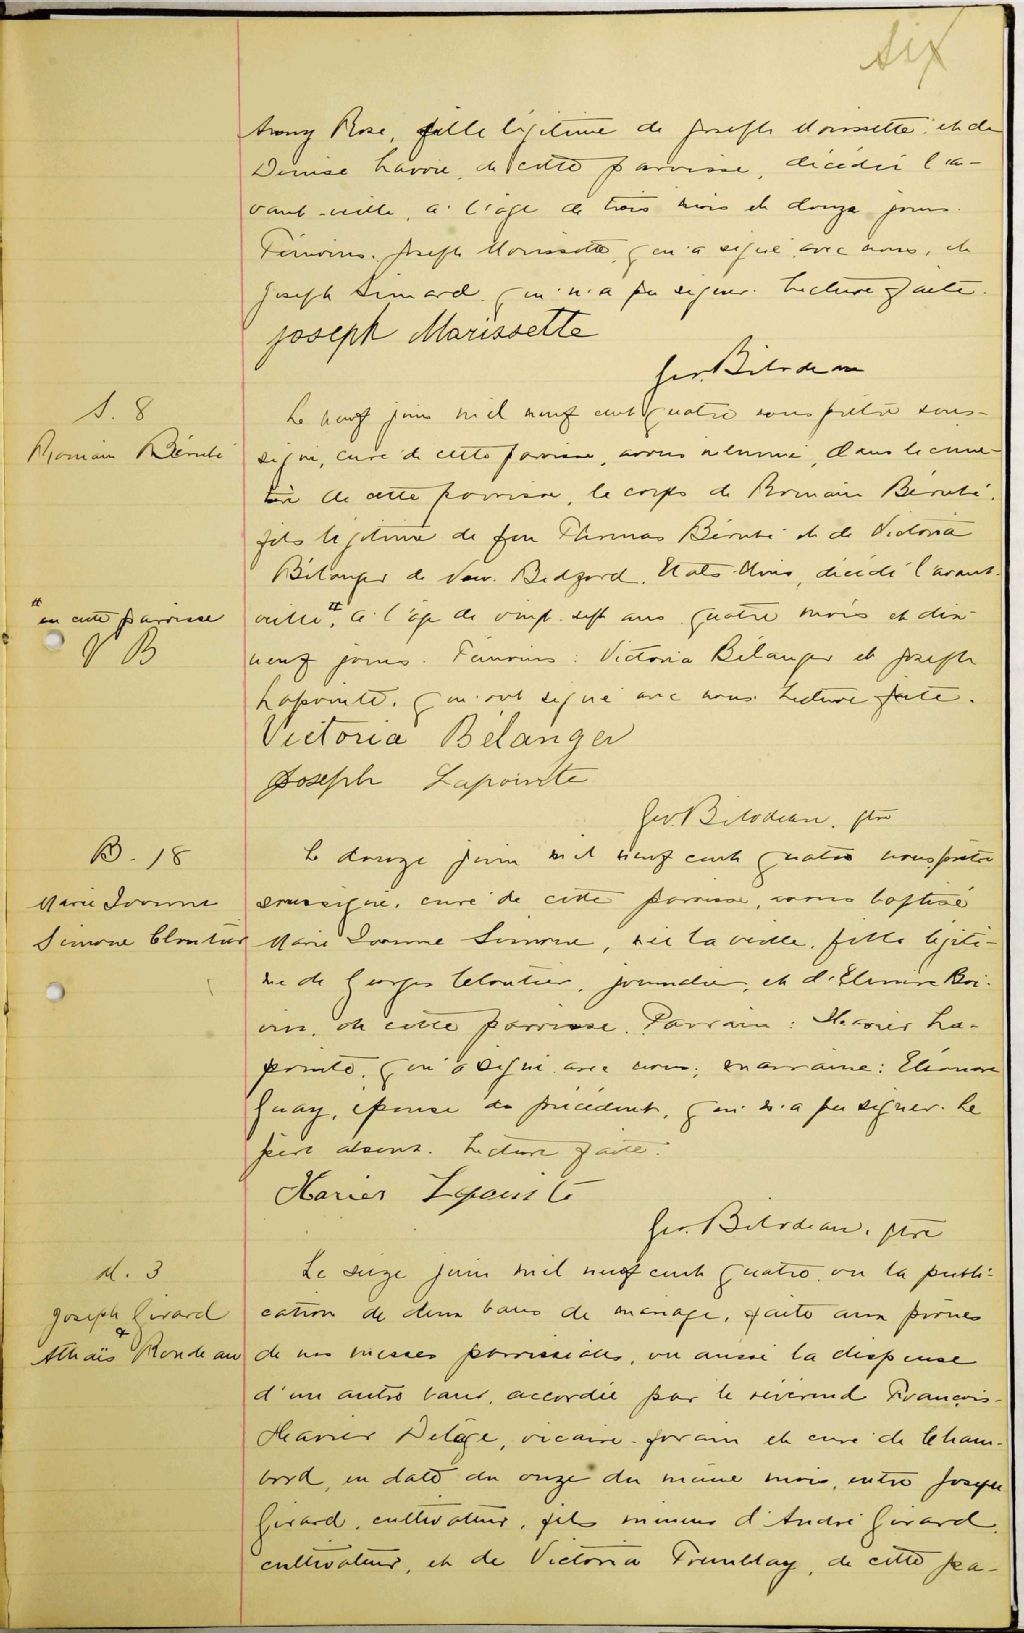 six
Rose, fille légitime de Joseph Morissette et de
Denise Lavoie, de cette paroisse, décédée l'a-
vant-veille, à l'âge de trois mois et douze jours.
Témoins: Joseph Morissette, qui a signé avec nous, et
Joseph Simard qui n'a pu signer. Lecture faite.
Joseph Marissette
Geo. Bilodeau
S. 8
Romain Bérubé
Le neuf juin mil neuf cent quatre nous prêtre sous-
signé, curé de cette paroisse, avons inhumé, dans le cime-
tière de cette paroisse, le corps de Romain Bérubé,
fils légitime de feu Thomas Bérubé et de Victoria
Bélanger de New-Bedford, Etats-Unis, décédé l'avant-
veille, # à l'âge de vingt-sept ans quatre mois et dix-
# en cette paroisse
V B
neuf jours. Témoins: Victoria Bélanger et Joseph
Lapointe, qui ont signé avec nous. Lecture faite.
Victoria Bélanger
Joseph Lapointe
Geo. Bilodeau, ptre
B. 18
Marie Ivonne
Simone Cloutier
Le douze juin mil neuf cent quatre nous prêtre
soussigné, curé de cette paroisse, avons baptisé
Marie Ivonne Simone, née la veille, fille légiti-
me de Georges Cloutier, journalier, et d'Elmire Boi-
vin, de cette paroisse. Parrain: Xavier La-
pointe, qui a signé avec nous; marraine: Eléonore
Guay, épouse du précédent, qui n'a pu signer. Le
père absent. Lecture faite.
Xavier Lapointe
Geo. Bilodeau, ptre
M. 3
Joseph Girard
&
Athaïs Rondeau
Le seize juin mil neuf cent quatre, vu la publi-
cation de deux bans de mariage, faite aux prônes
de nos messes paroissiales, vu aussi la dispense
d'un autre banc, accordée par le révérend François-
Xavier Delâge, vicaire-forain et curé de Cham-
bord, en date du onze du même mois, entre Joseph
Girard, cultivateur, fils mineur d'André Girard,
cultivateur, et de Victoria Tremblay, de cette pa-